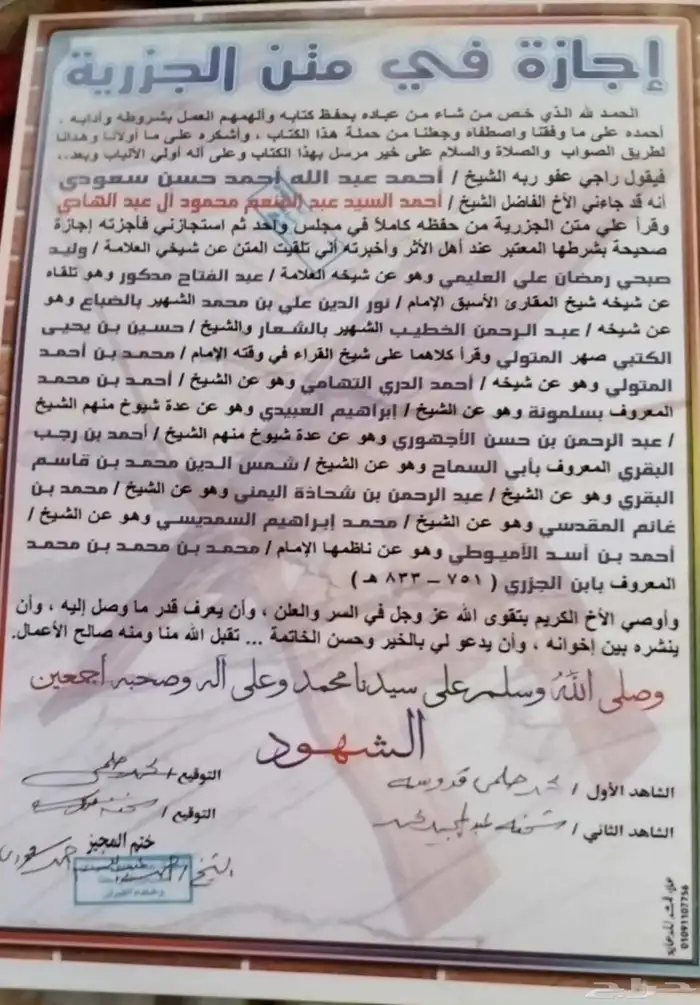 إجازة في متن الجزرية
الحمد لله الذي خص من شاء من عباده بحفظ كتابه وألهمهم العمل بشروطه وآدابه ،
أحمده على ما وفقنا واصطفاه وجعلنا من حملة هذا الكتاب ، وأشكره على ما أولانا وهدانا
لطريق الصواب والصلاة والسلام على خير مرسل بهذا الكتاب وعلى آله أولي الألباب وبعد..
فيقول راجي عفو ربه الشيخ / أحمد عبد الله أحمد حسن سعودي
أنه قد جاءني الأخ الفاضل الشيخ / أحمد السيد عبد المنعم محمود آل عبد الهادي
وقرأ علي متن الجزرية من حفظه كاملاً في مجلس واحد ثم استجازني فأجزته إجازة
صحيحة بشرطها المعتبر عند أهل الأثر وأخبرته أني تلقيت المتن عن شيخي العلامة / وليد
صبحي رمضان علي العليمي وهو عن شيخه العلامة / عبد الفتاح مدكور وهو تلقاه
عن شيخه شيخ المقارئ الأسبق الإمام / نور الدين علي بن محمد الشهير بالضباع وهو
عن شيخه / عبد الرحمن الخطيب الشهير بالشعار والشيخ / حسين بن يحيى
الكتبي صهر المتولي وقرأ كلاهما على شيخ القراء في وقته الإمام / محمد بن أحمد
المتولي وهو عن شيخه / أحمد الدري التهامي وهو عن الشيخ / أحمد بن محمد
المعروف بسلمونة وهو عن الشيخ / إبراهيم العبيدي وهو عن عدة شيوخ منهم الشيخ
/ عبد الرحمن بن حسن الأجهوري وهو عن عدة شيوخ منهم الشيخ / أحمد بن رجب
البقري المعروف بأبي السماح وهو عن الشيخ / شمس الدين محمد بن قاسم
البقري وهو عن الشيخ / عبد الرحمن بن شحاذة اليمني وهو عن الشيخ / محمد بن
غانم المقدسي وهو عن الشيخ / محمد إبراهيم السمديسي وهو عن الشيخ /
أحمد بن أسد الأميوطي وهو عن ناظمها الإمام / محمد بن محمد بن محمد
المعروف بابن الجزري ( ٧٥١ – ٨٣٣ هـ )
وأوصي الأخ الكريم بتقوى الله عز وجل في السر والعلن ، وأن يعرف قدر ما وصل إليه ، وأن
ينشره بين إخوانه ، وأن يدعو لي بالخير وحسن الخاتمة ... تقبل الله منا ومنه صالح الأعمال.
وصلى الله وسلم على سيدنا محمد وعلى آله وصحبه أجمعين
الشهود
الشاهد الأول / محمد حلمى قدوسه
التوقيع / محمد حلمى
الشاهد الثاني / شحته عبد الجيد محمد
التوقيع /
ختم المجيز
01091107756
حراج